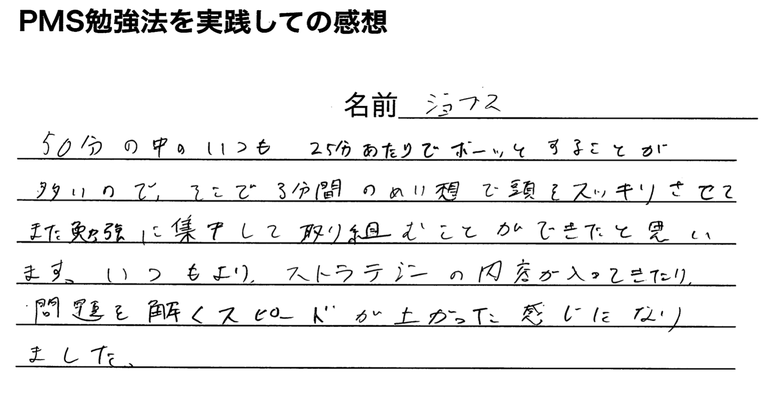 PMS勉強法を実践しての感想
名前 ジョブス
50分の中のいつも 25分あたりでボーッとすることが
多いので、そこで3分間のめい想で頭をスッキリさせて
また勉強に集中して取り組むことができたと思い
ます。いつもより、ストラテジーの内容が入ってきたり、
問題を解くスピードが上がった感じになり
ました。